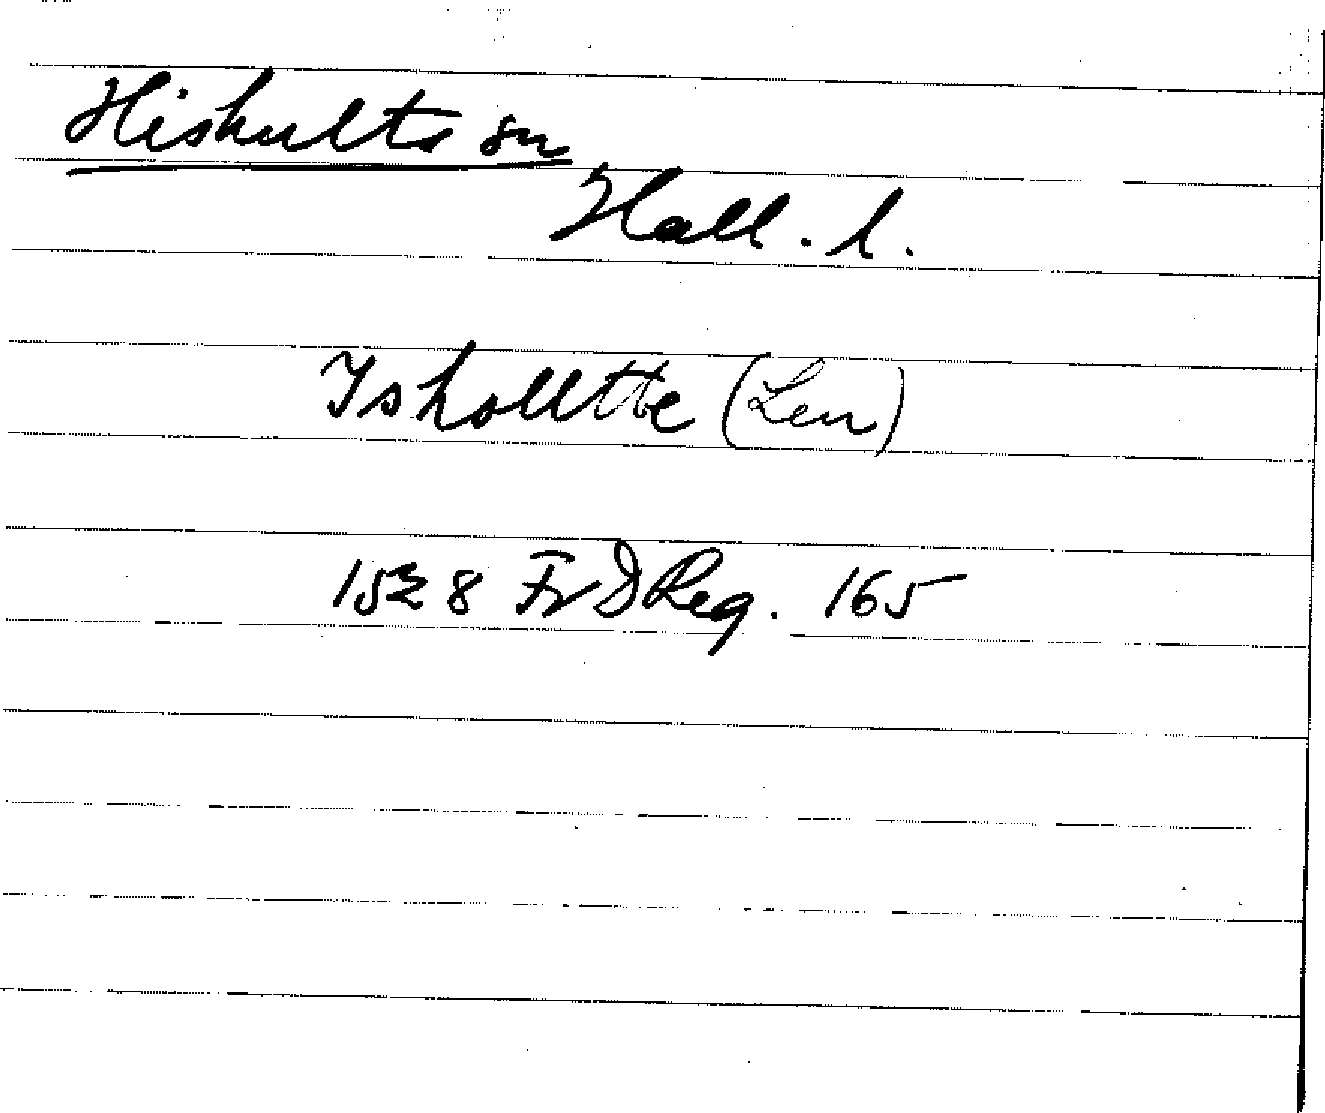 Hishults sn
Hall. l.
Ysholltte (Len)
1528 Fr I Reg. 165